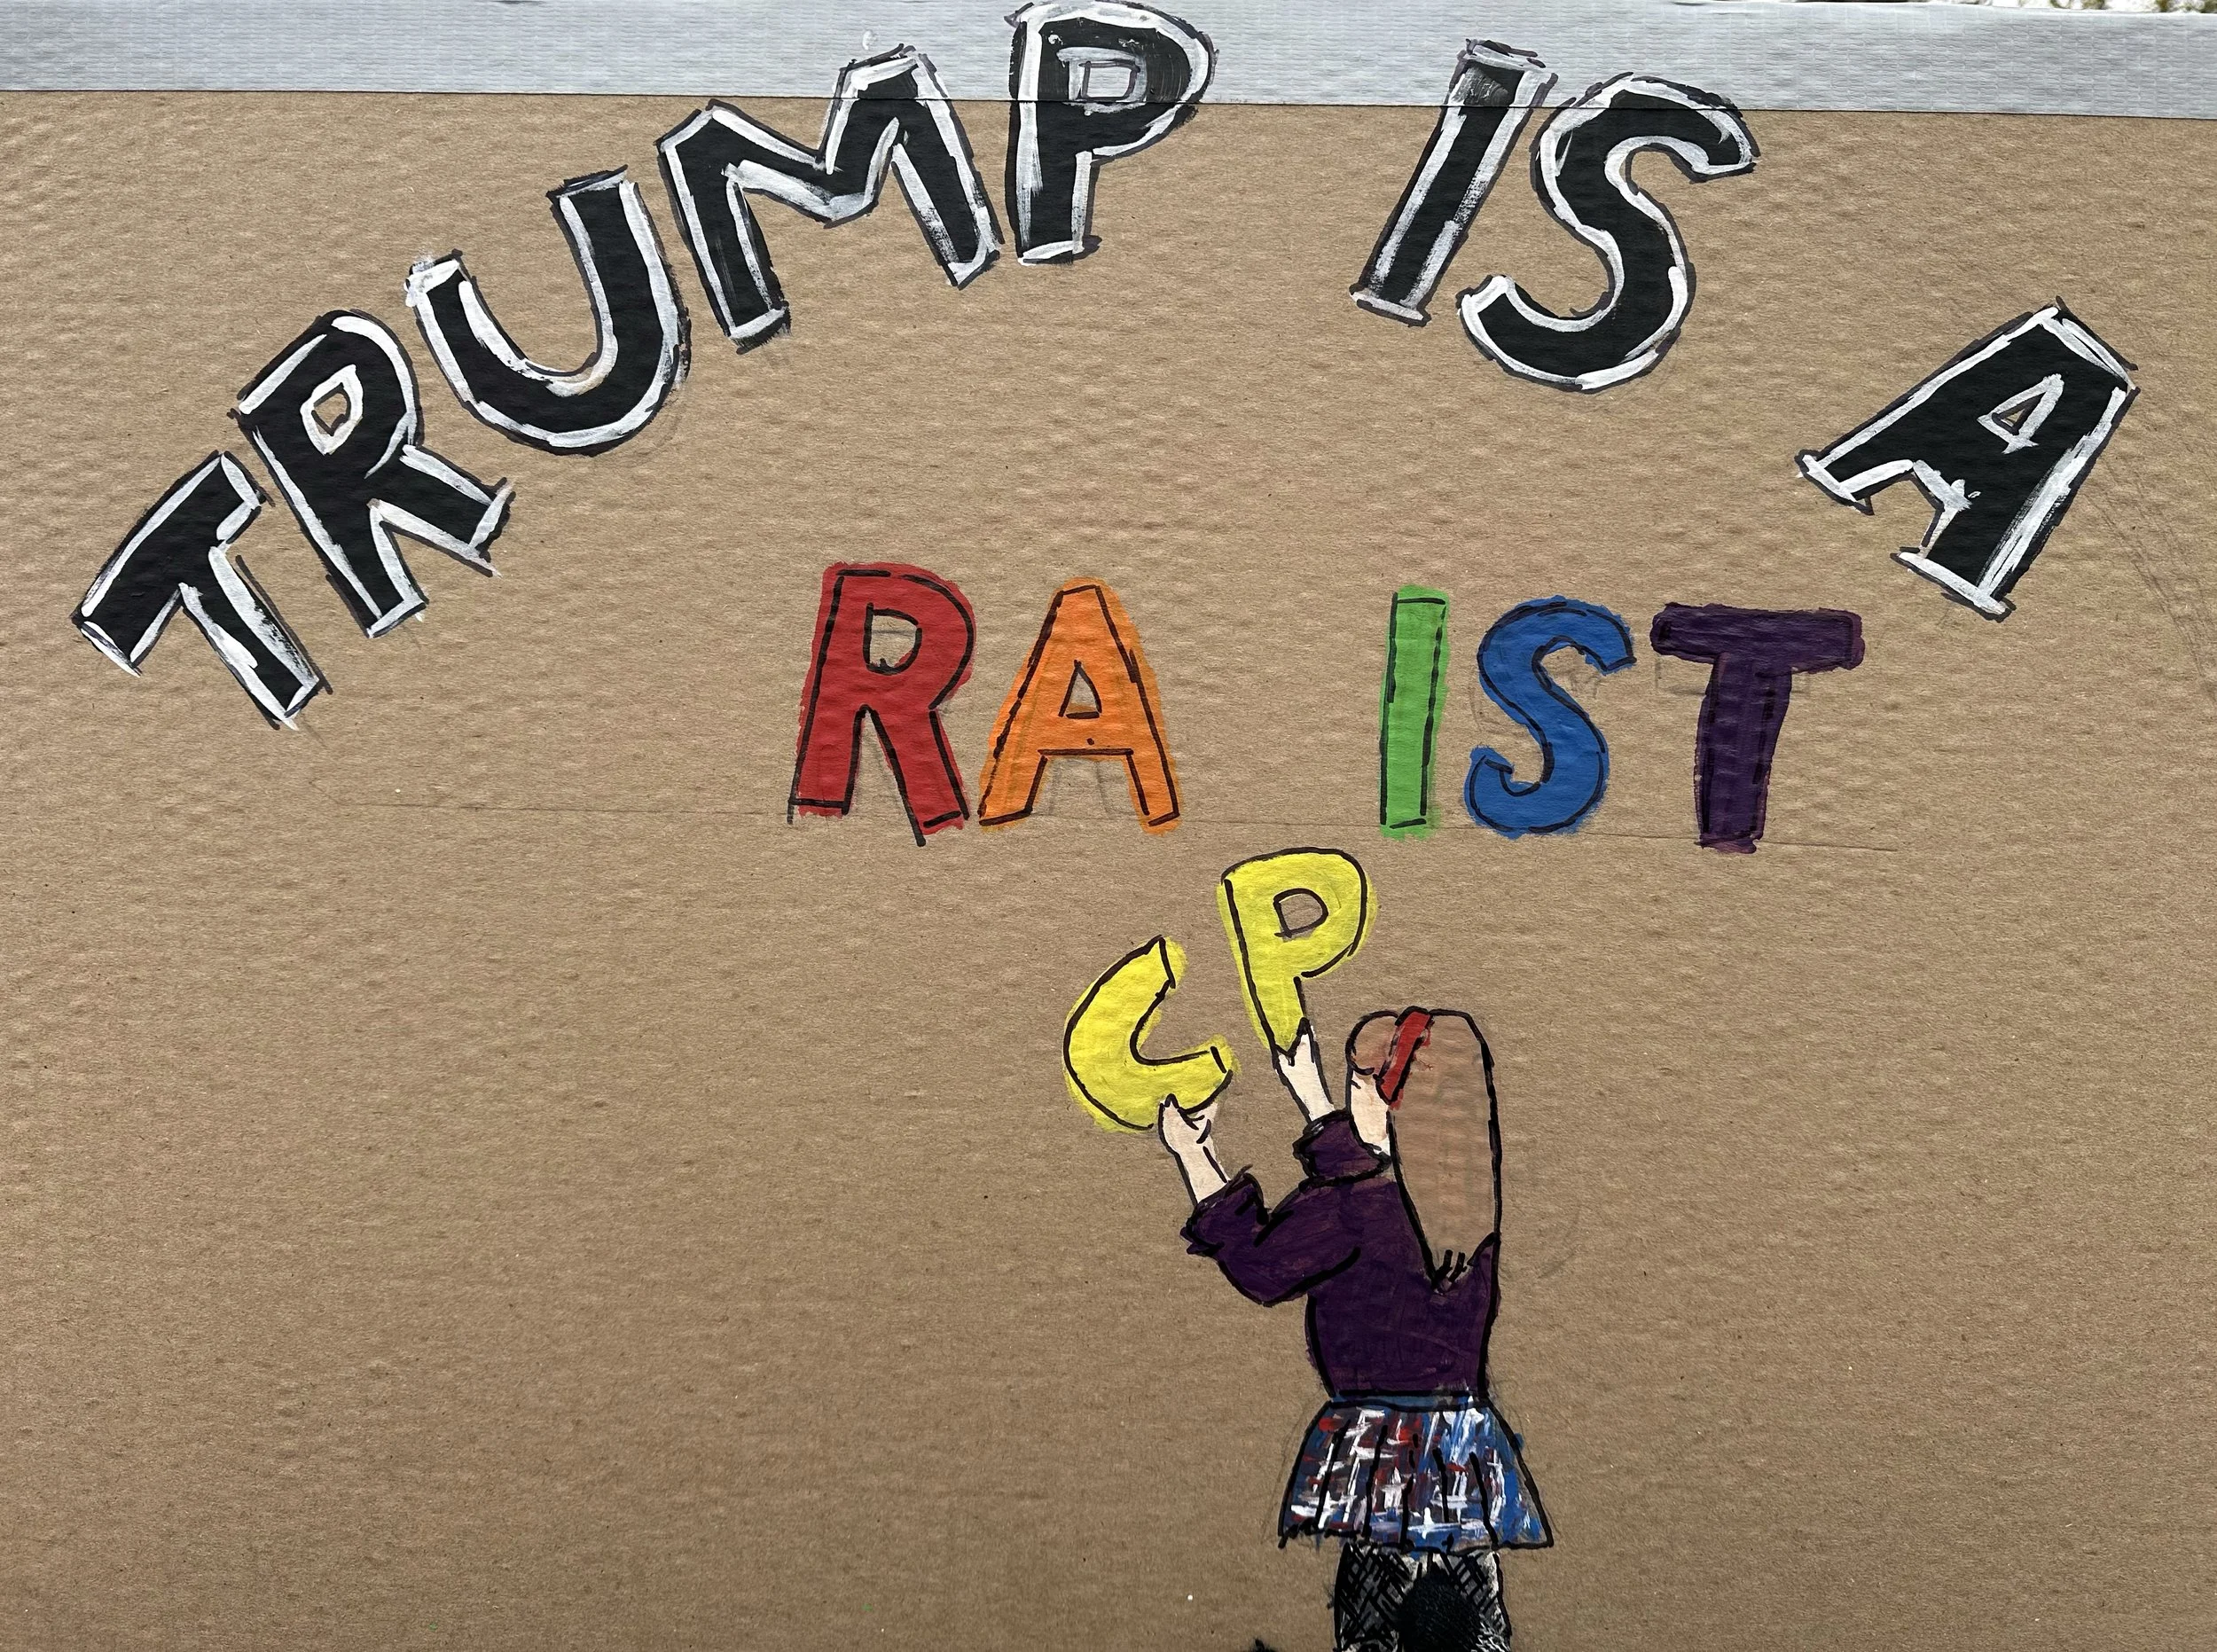 TRUMP IS A
RA IST
C P